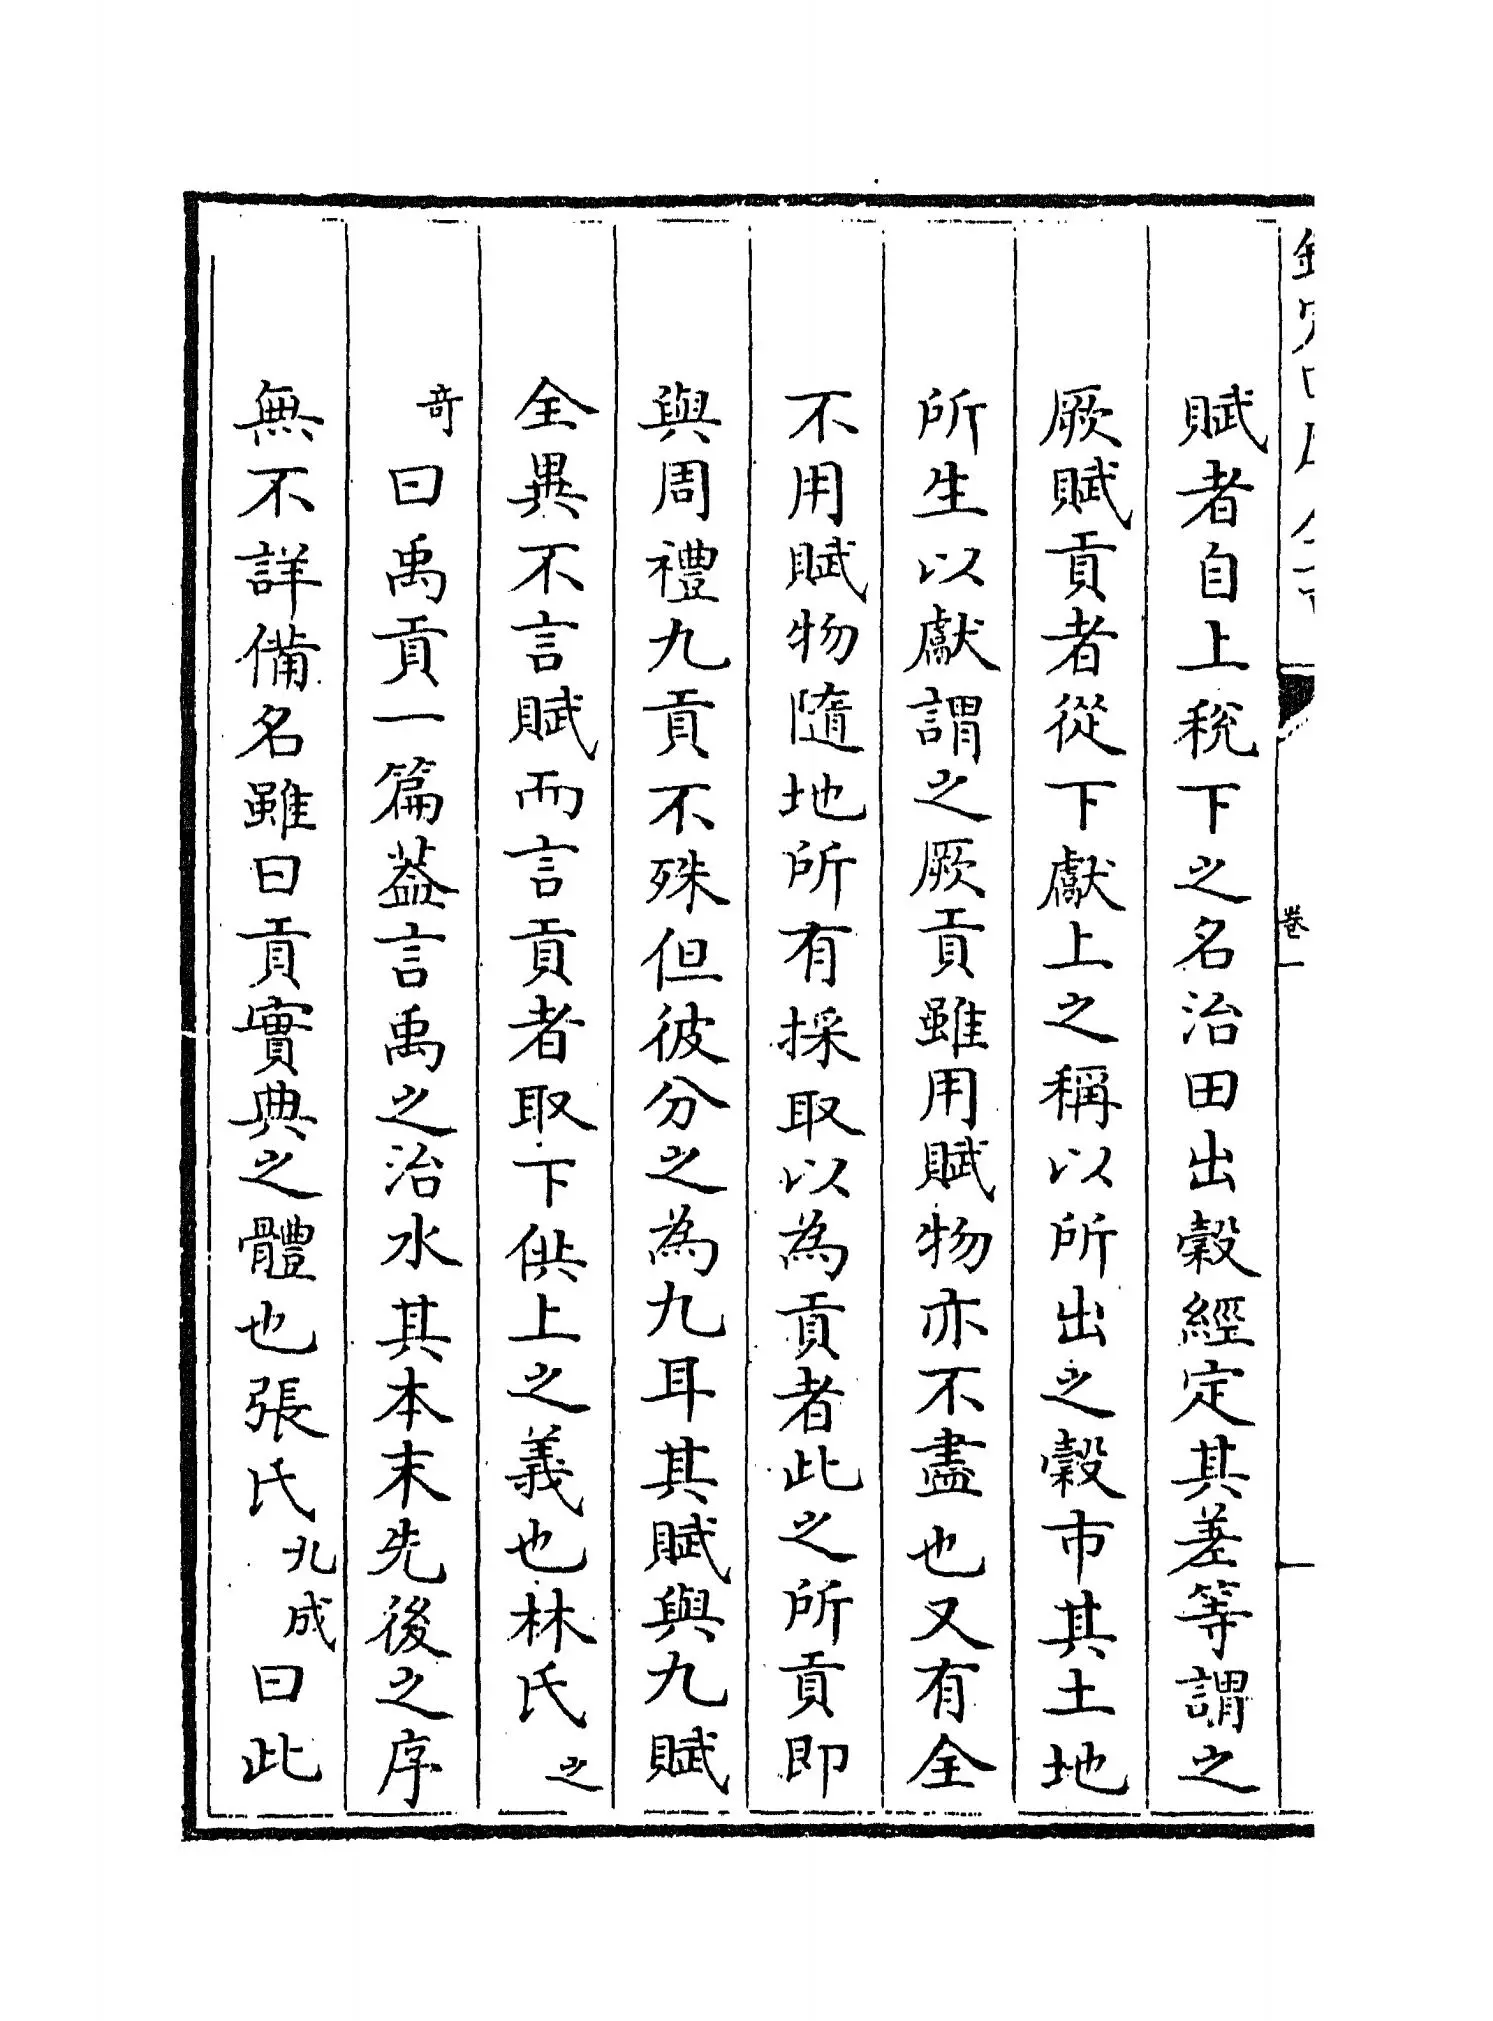 賦者自上稅下之名治田出榖經定其差等謂之
厥賦貢者從下獻上之稱以所出之榖市其土地
所生以獻謂之厥貢雖用賦物亦不盡也又有全
不用賦物隨地所有採取以為貢者此之所貢即
與周禮九貢不殊但彼分之為九耳其賦與九賦
全異不言賦而言貢者取下供上之義也林氏之
奇曰禹貢一篇葢言禹之治水其本末先後之序
無不詳備名雖曰貢實典之體也張氏九成曰此
卷一